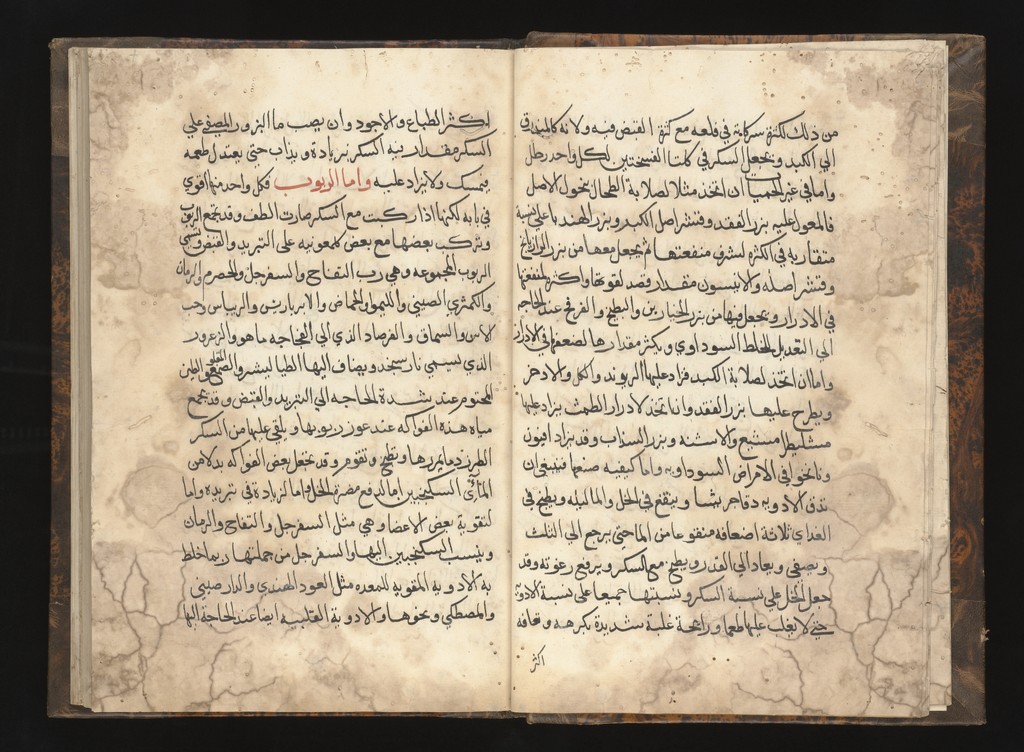 من ذلك لكنه سركانه في قلعه مع كثرة القبض فيه ولانه كالمبدرق
الي الكبد ويجعل السكر في كلتا الفسختين لكل واحد رطل
واما في غير الحميات ان اتخذ مثلا لصلابة الطحال بخول الاصل
فالمعول عليه بزر الفقد وقشر اصل الكبر وبزر الهندبا علي نسبة
متقاربه في الكثره لشرف منفعتها ثم يجعل معها من بزر الرازيانج
وقشر اصله والانيسون مقدار قصد لقوتها واكثر لمنفعتها
في الادرار ويجعل فيها من بزر الخيارين والبطيخ والقرع عند الحاجه
الي التعديل للخلط السوداوي ويكثر مقدارها لضعفها في الادرار
واما ان اتخذ لصلابة الكبد فزاد عليها الريوند واللك والاذخر
ويطرح عليها بزر الفقد وانا تخذ لادرار الطمث يزاد عليها
مشكطرامشيع والاشنه وبزر السذاب وقد يزاد افيون
ونانخواه في الامراض السوداويه واما كيفيه صنعها فينبغي ان
تدق الادويه دقا جريشا وينقع في الخل والما ليله ويطبخ في
الغداي ثلاثة اضعافه منقوعا من الما حتي يرجع الي الثلث
ويصفي ويعاد الي القدر ويطبخ مع السكر ويرفع رغوته وقد
جعل الخل علي نسبة السكر ونسبتها جميعا علي نسبة الادويه
حتي لا يغلب عليها طعما ورائحة غلبة شديدة بكرهه وتعافه
اكثر
اكثر الطباع والاجود وان يصب ما البزور المصفي علي
السكر مقدار فيه السكر بزيادة ويذاب حتي يعتدل طعمه
فيمسك ولا يزاد عليه واما الربوب فكل واحد منها اقوي
في بابه لكنها اذا ركبت مع السكر صارت الطف وقد تجمع الربوب
وتركب بعضها مع بعض كمعونيه علي التبريد والقبض وتسمي
الربوب المجموعه وهي رب التفاح والسفرجل والحصرم والرمان
والكمثري الصيني والليمو والحماض والامبرباريس والريباس وحب
الاس والسماق والفرصاد الذي الي الفجاجه ما هو والزعرور
الذي يسمي نارسيخد ويضاف اليها الطباشير والصمغ المقلو والطين
المختوم عند شدة الحاجه الي التبريد والقبض وقد تجمع
مياه هذه الفواكه عند عوز ربوبها ويلقي عليها من السكر
الطبرزد ما يمررها ويطبخ وتقوم وقد يجعل بعض الفواكه بدلا من
الماء في السكنجبين اما لدفع مضرة الخل واما لزيادة في تبريده واما
لتقوية بعض الاعضا وهي مثل السفرجل والتفاح والرمان
وينسب السكنجبين اليها والسفرجل من جملتها ربما خلط
به الادويه المقويه للمعده مثل العود الهندي والدارصيني
والمصطكي ونحوها والادوية القلبيه ايضا عند الحاجة اليها